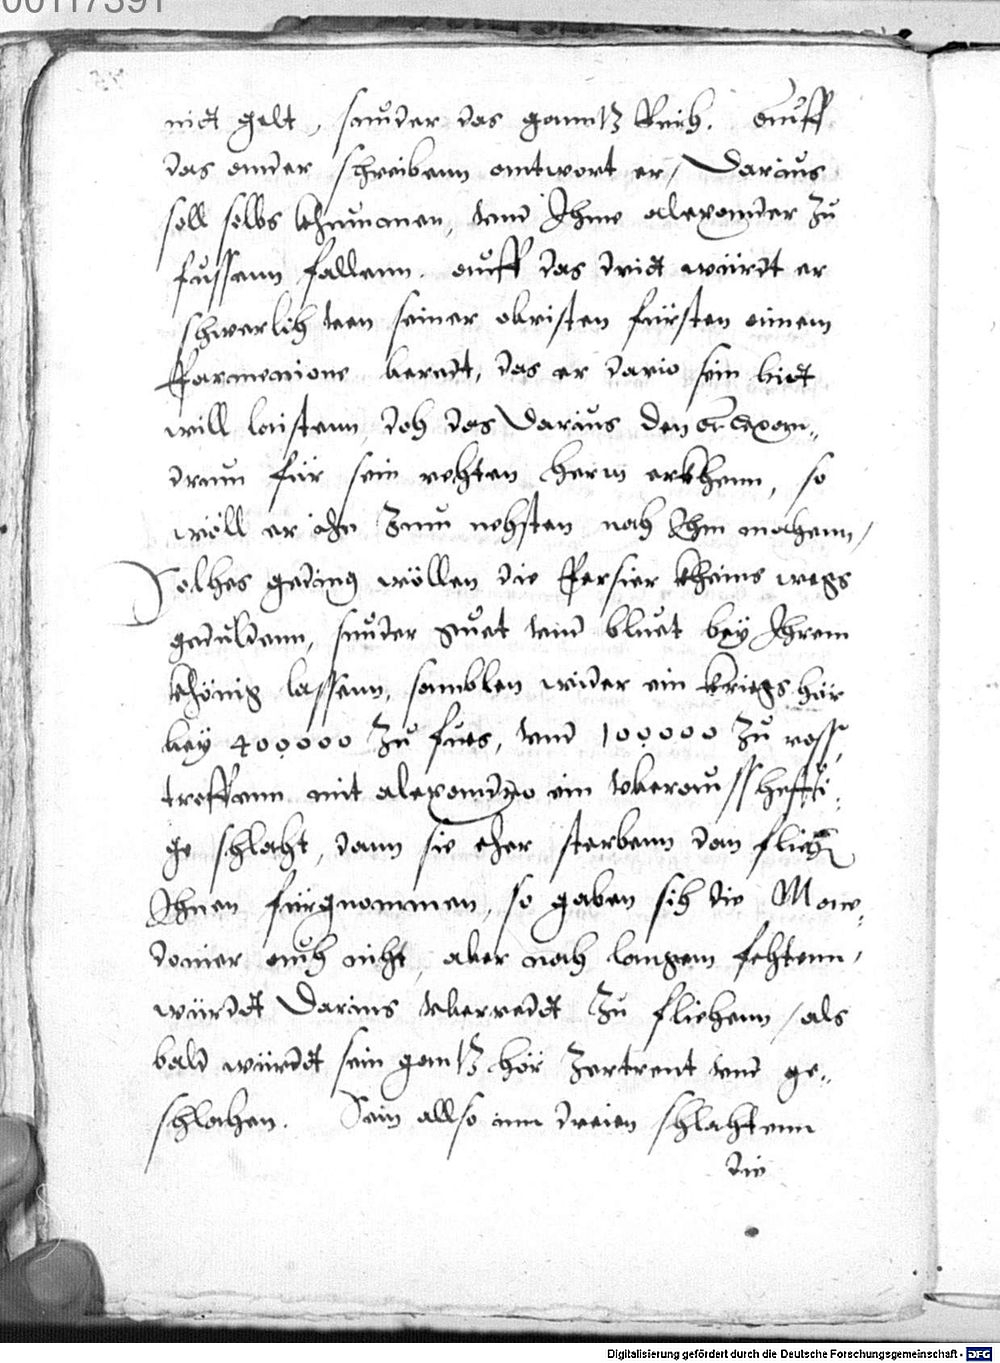 00117391
nict gelt, sonder das ganntz Reich. Auff
das annder schreibenn antwort er, Darius
soll selbs khummen, vnnd Jhme alexannder zu
fussenn fallenn. auff das drict würdt er
schwerlich von seiner obristen fürsten einem
Parmenione beredt, das er dario sein bict
will laistenn, doch das Darius den Alexan„
drum für sein rechten herrn erkhenn, so
wöll er ihn zum nechsten nach Jhm machenn,
Solches geding wöllen die Persier kheins wegs
geduldenn, sunder guet vnnd bluet bey Jhrem
khönig lassenn, samblen wider ein kriegs hör
bey 400000 zu fues, vnnd 100000 zu ross,
treffenn mit alexandro ein vberauss hefti„
ge schlacht, dann sie eher sterbenn dan fliehen
Jhnen fürgnommen, so gaben sich die Mace„
donier auch nicht, aber nach langem fechtenn,
würdt Darius vberredt zu fliehenn, als
bald würdt sein gantz hör zertrent vnnd ge„
schlachen. Sein allso inn dreien schlachtenn
die
Digitalisierung gefördert durch die Deutsche Forschungsgemeinschaft - DFG